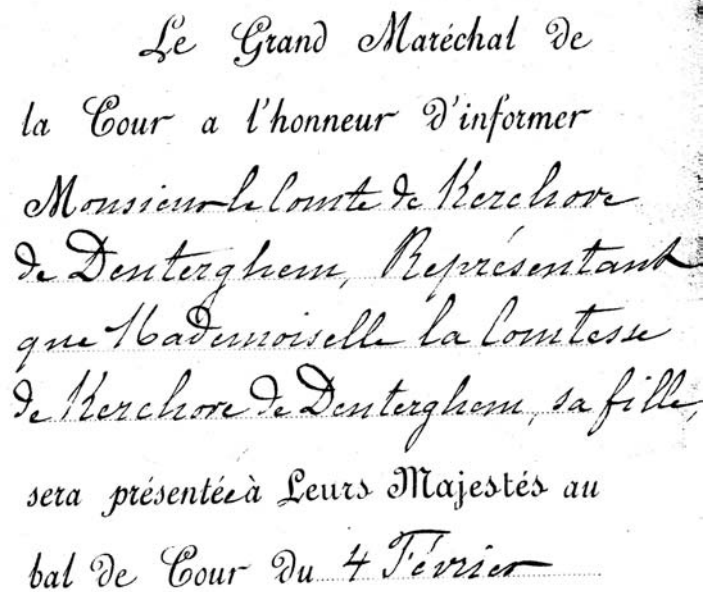 Le Grand Maréchal de
la Cour a l'honneur d'informer
Monsieur le Comte de Kerchove
de Denterghem, Représentant
que Mademoiselle la Comtesse
de Kerchove de Denterghem, sa fille,
sera présentée à Leurs Majestés au
bal de Cour du 4 Février